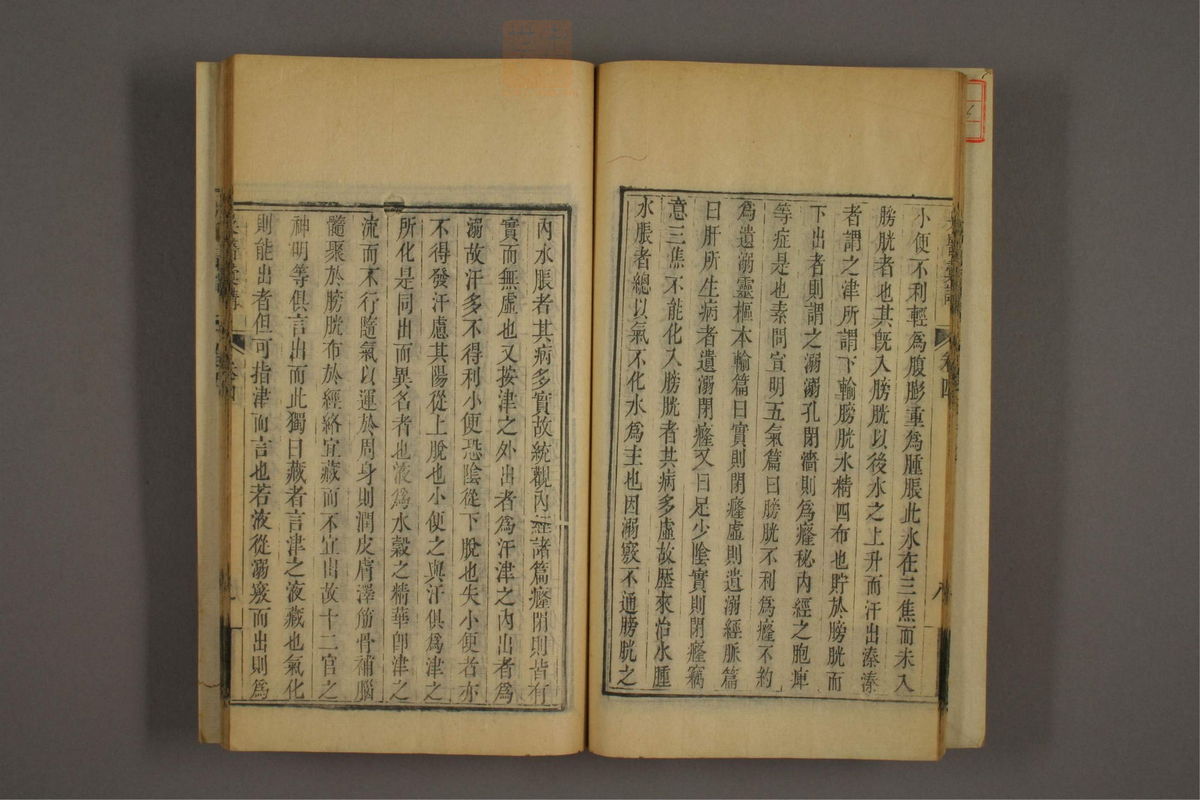 小便不利輕爲腹膨重爲腫脹此水在三焦而未入
膀胱者也其旣入膀胱以後水之上升而汗出溱溱
者謂之津所謂下輸膀胱水精四布也貯於膀胱而
下出者則謂之溺溺孔閉濇則爲癃秘內經之胞痺
等症是也素問宣明五氣篇曰膀胱不利爲癃不約
爲遺溺靈樞本輸篇曰實則閉癃虛則遺溺經脈篇
曰肝所生病者遺溺閉癃又曰足少陰實則閉癃竊
意三焦不能化入膀胱者其病多虛故歷來治水腫
水脹者總以氣不化水爲主也因溺竅不通膀胱之
卷四
八
內水脹者其病多實故統觀內經諸篇癃閉則皆有
實而無虛也又按津之外出者爲汗津之內出者爲
溺故汗多不得利小便恐陰從下脫也失小便者亦
不得發汗慮其陽從上脫也小便之與汗俱爲津之
所化是同出而異名者也液爲水穀之精華卽津之
流而不行隨氣以運於周身則潤皮膚澤筋骨補腦
髓聚於膀胱布於經絡宜藏而不宜出故十二官之
神明等俱言出而此獨曰藏者言津之液藏也氣化
則能出者但可指津而言也若液從溺竅而出則爲
卷四